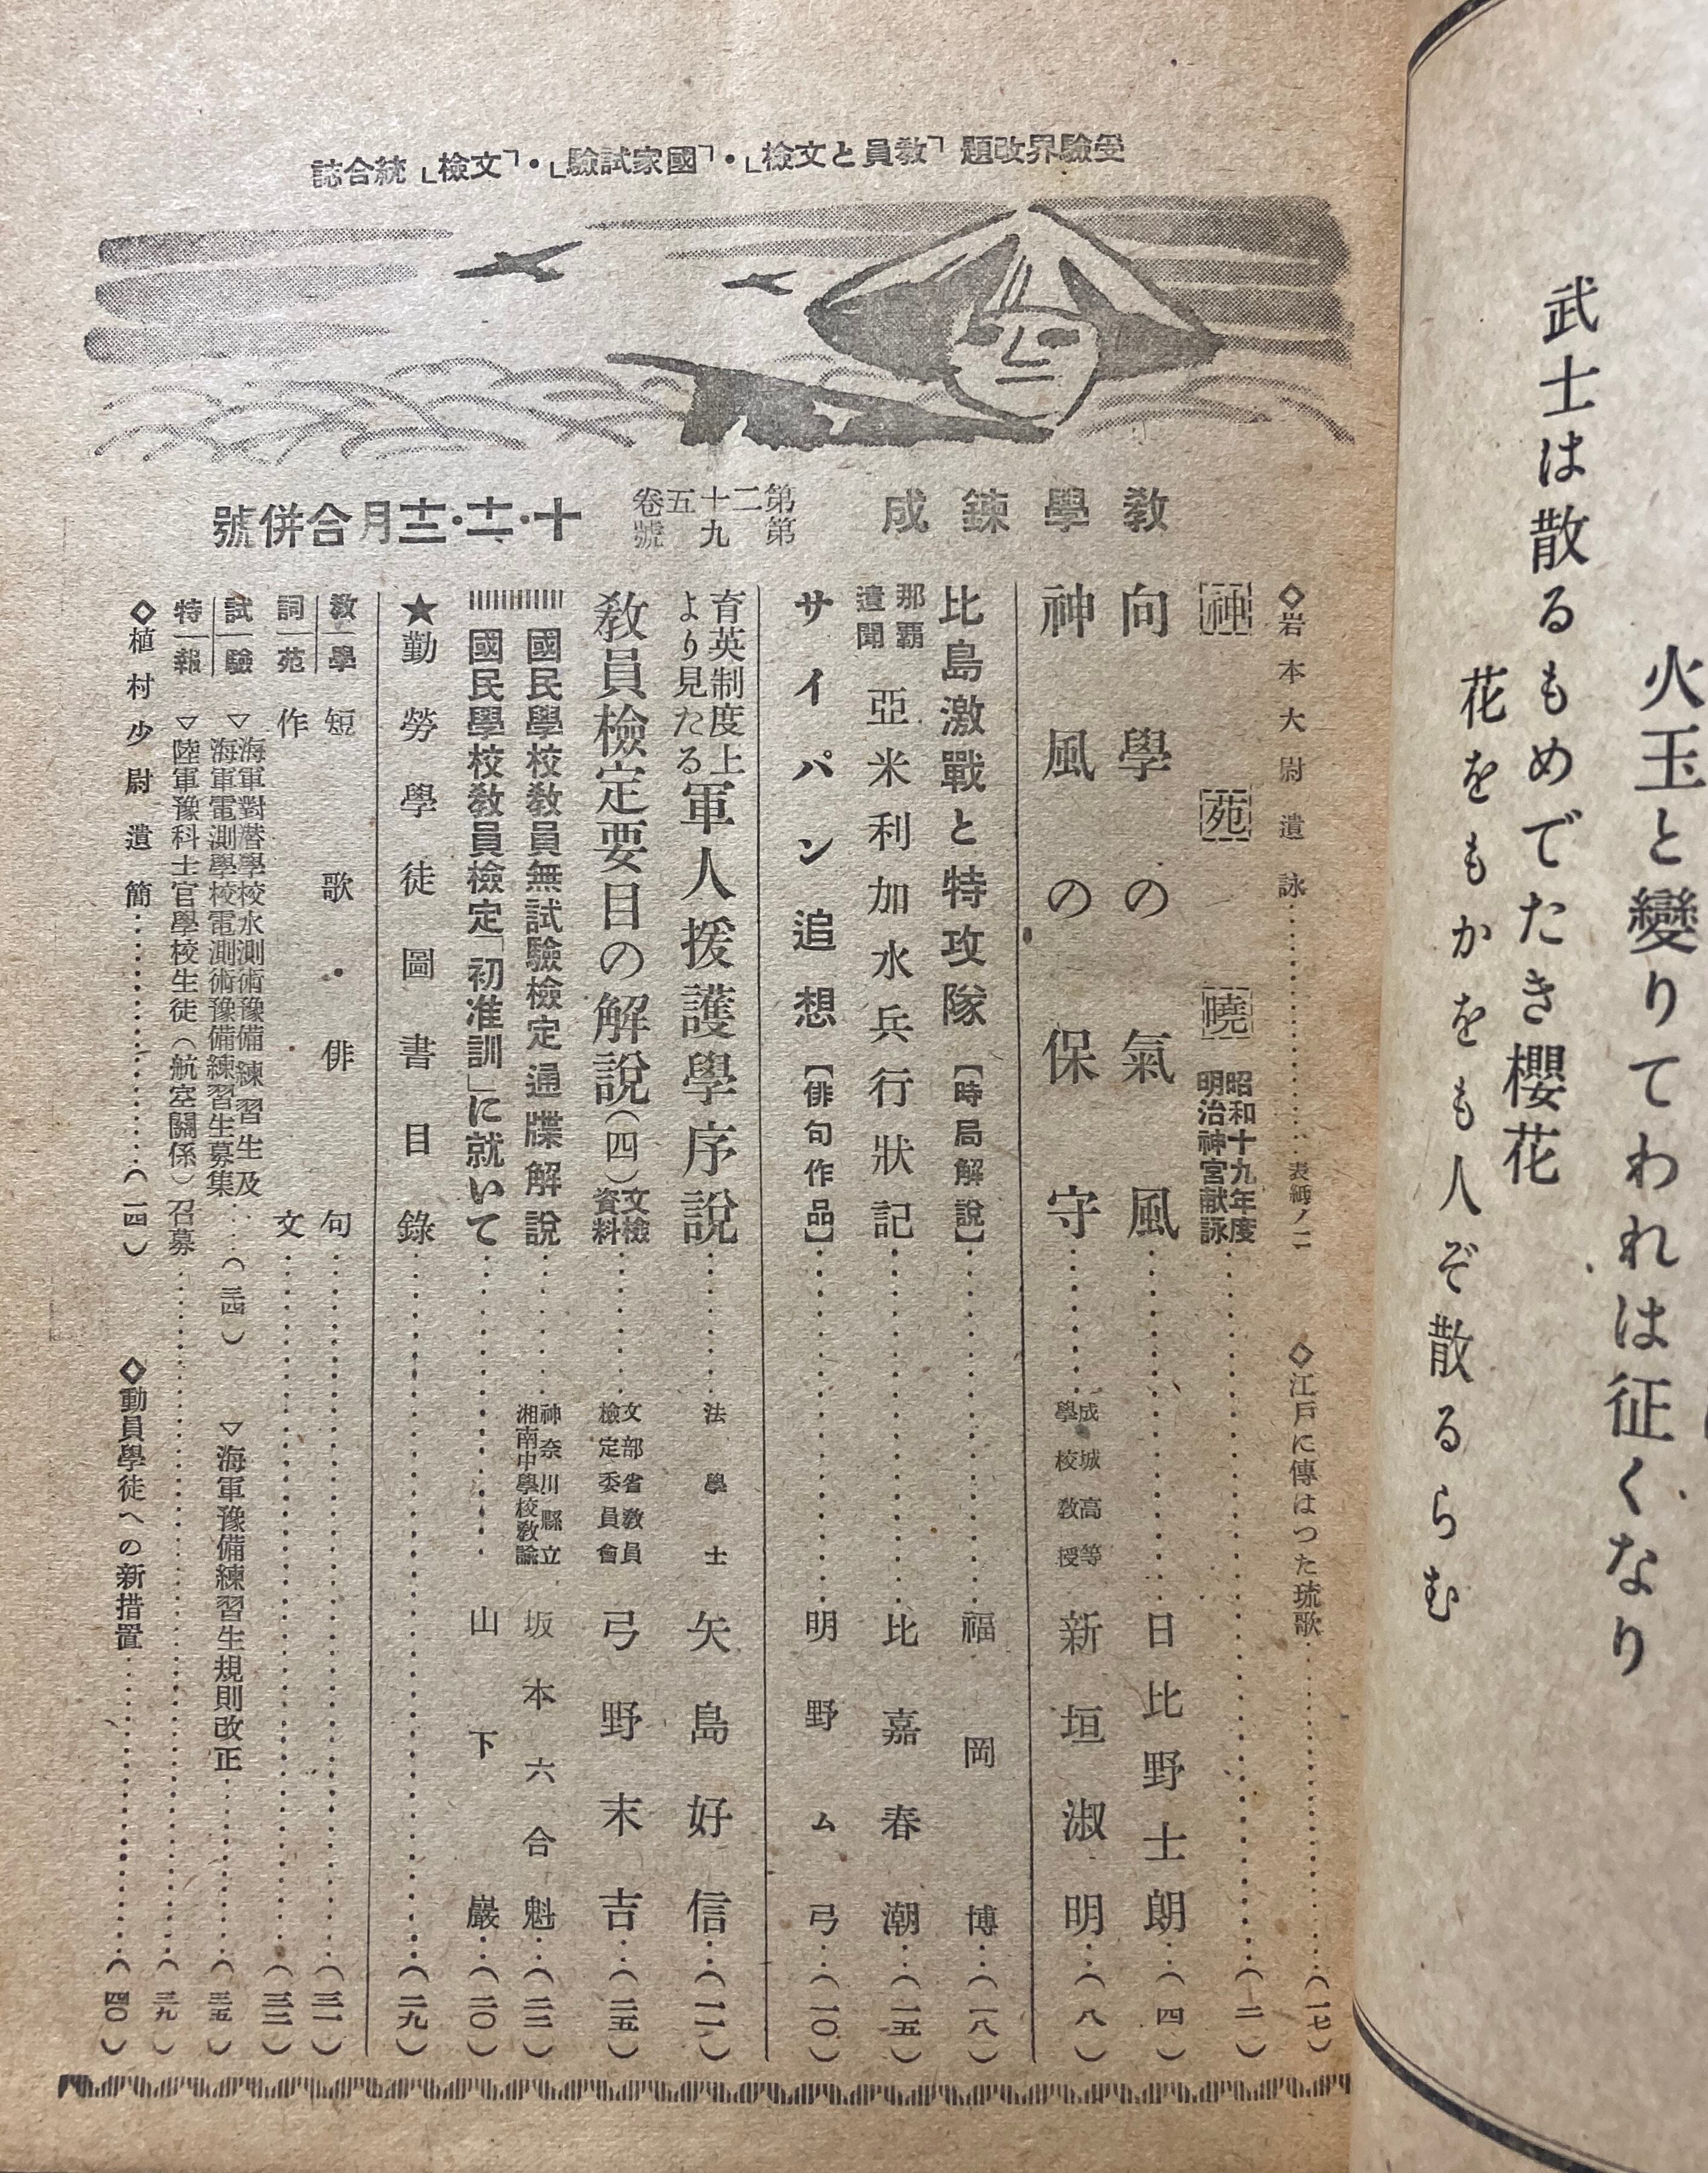 火玉と變りてわれは征くなり
武士は散るもめでたき櫻花
花をもかをも人ぞ散るらむ
受驗界改題「教員と文檢」・「國家試驗」・「文檢」統合誌
教學鍊成
第二十五卷
第九號
十・十一・十二月合併號
◇岩本大尉遺詠……表紙ノ二
◇江戸に傳はつた琉歌……(一七)
神苑曉 昭和十九年度明治神宮献詠……(二)
向學の氣風……日比野士朗…(四)
神風の保守……成城高等學校教授 新垣淑明…(八)
比島激戰と特攻隊【時局解說】……福岡博…(一八)
那覇遺聞 亞米利加水兵行狀記……比嘉春潮…(一五)
サイパン追想【俳句作品】……明野ム弓…(一〇)
育英制度上より見たる軍人援護學序說……法學士 矢島好信…(一一)
教員檢定要目の解說(四)文檢資料……文部省教員檢定委員會 弓野末吉…(二五)
國民學校教員無試驗檢定通牒解說……神奈川縣立湘南中學校教諭 坂本六合魁…(二二)
國民學校教員檢定「初准訓」に就いて……山下巖…(二〇)
★勤勞學徒圖書目錄……(二九)
教學詞苑
短歌・俳句……(三一)
作文……(三二)
試驗特報
▽海軍對潛學校水測術豫備練習生及海軍電測學校電測術豫備練習生募集……(三四)
▽海軍豫備練習生規則改正……(三五)
▽陸軍豫科士官學校生徒(航空關係)召募……(三九)
◇植村少尉遺簡……(一四)
◇動員學徒への新措置……(四〇)